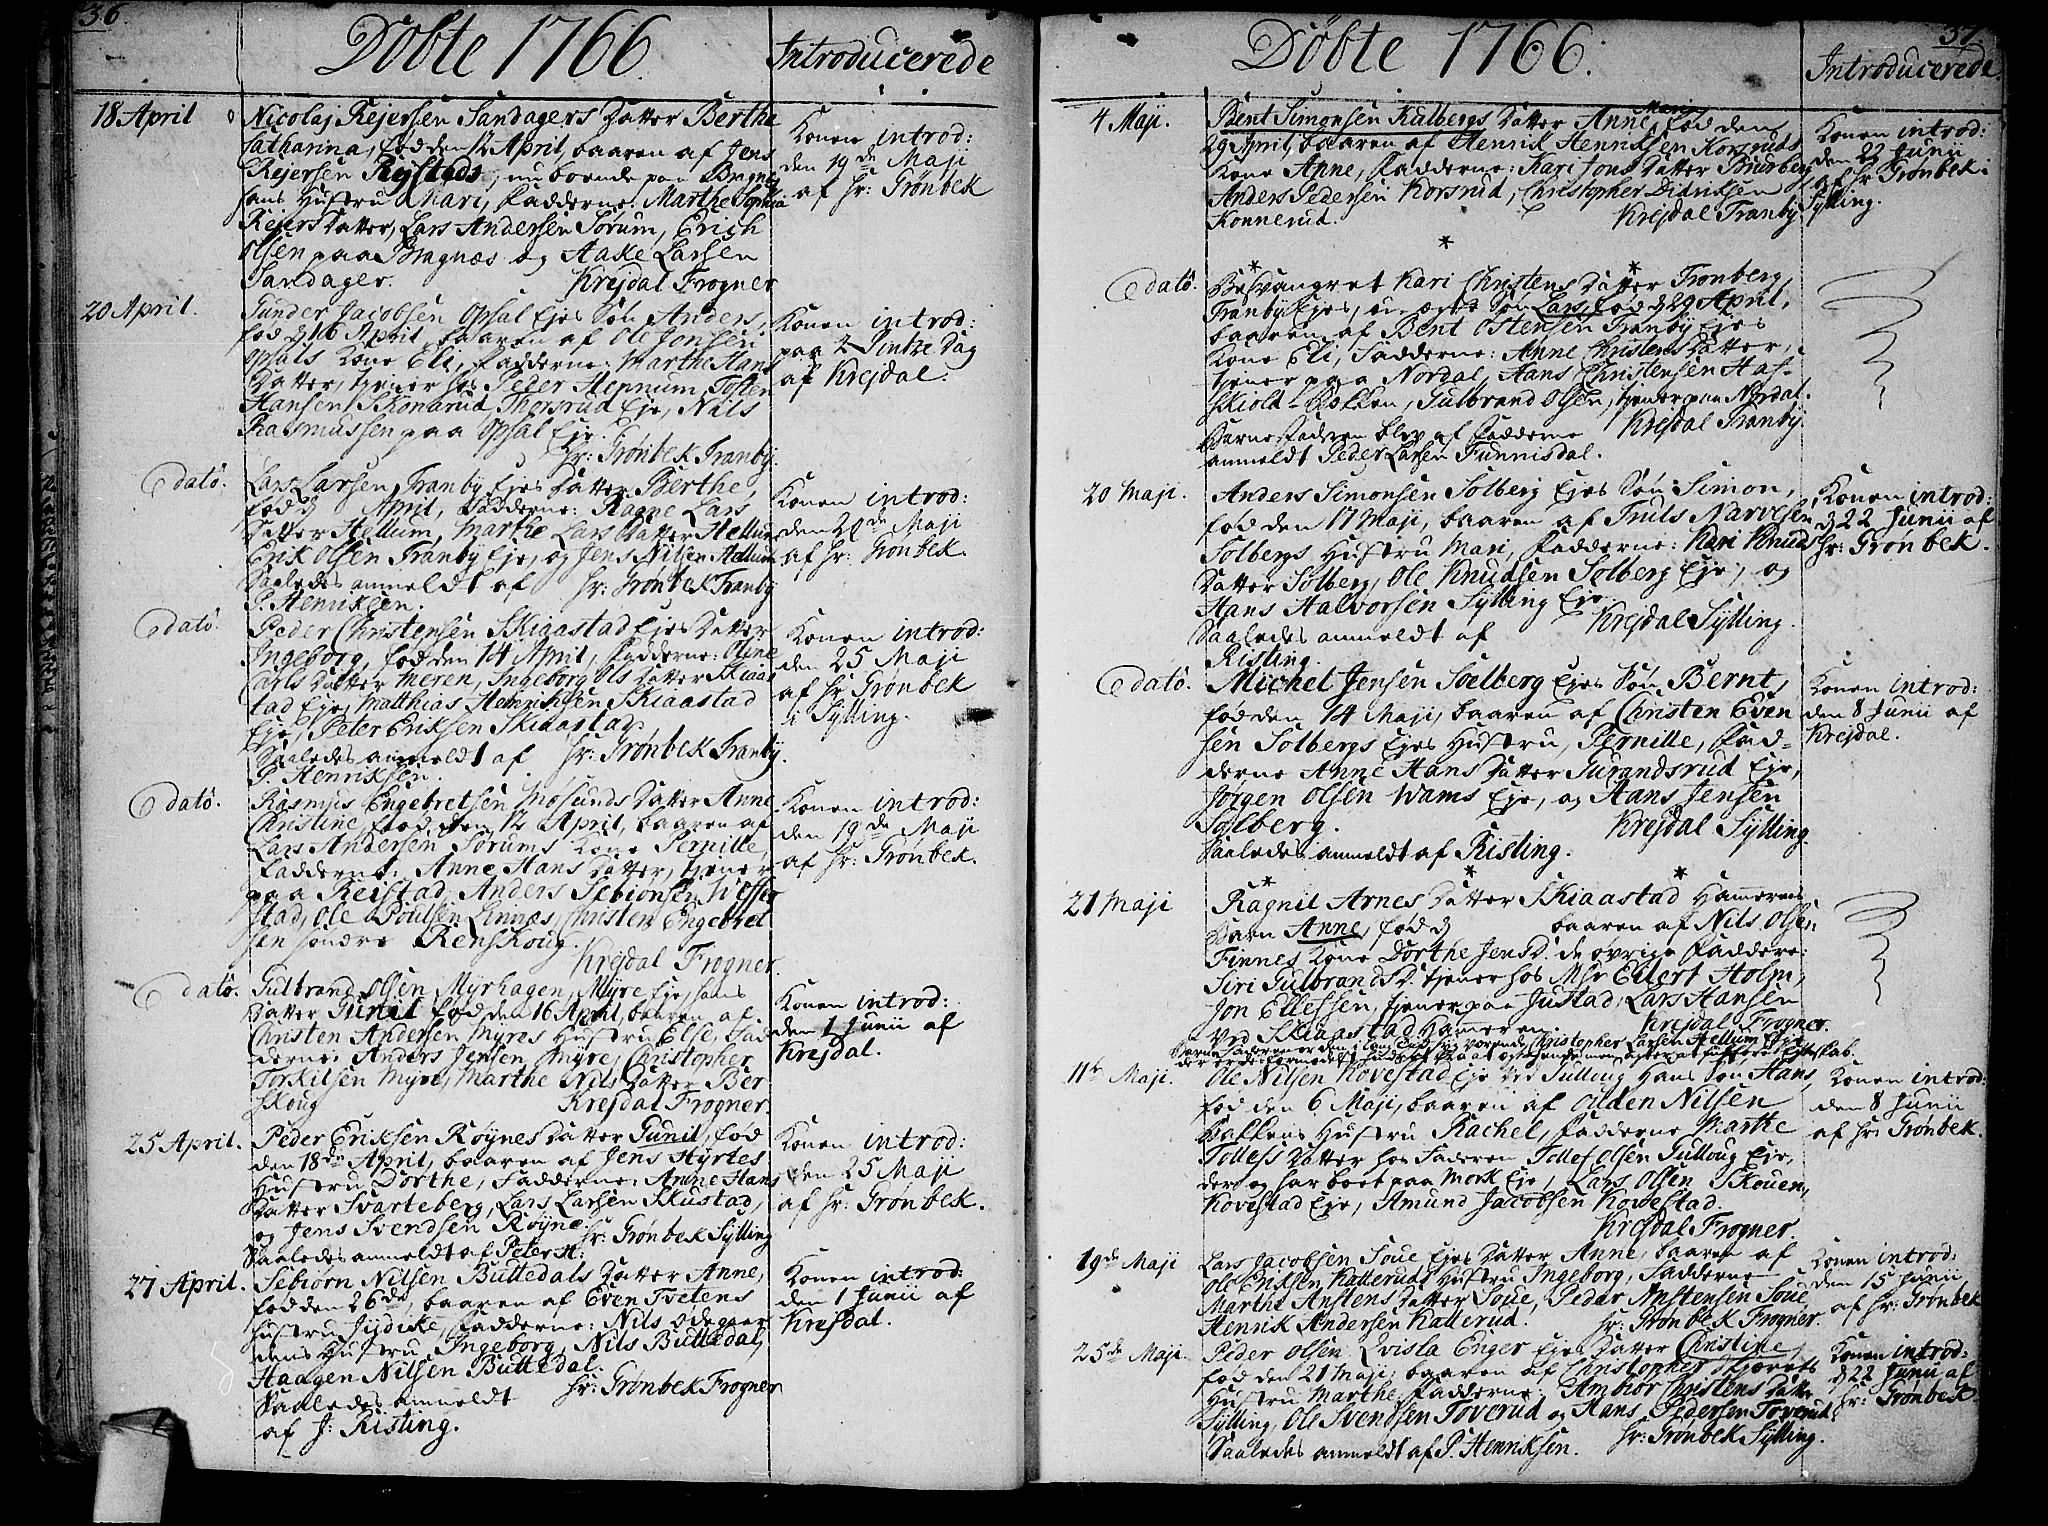 36.
Döbte 1766
Introducerede
18 April
Nicolaj Rejersen Sandagers Datter Berthe
Catharina, fød den 12 April, baaren af Jens
Rejersen Rejstads, nu boende paa Bragnes
hans Hustru Mari, Fadderne: Marthe Sophia
Rejers Datter, Lars Andersen Sørum, Erich
Olsen paa Bragnæs og Aake Larsen
Sandager. Krejdal Frogner
Konen introd:
den 19de Maji
af Hr: Grönbek
20 April.
Gunder Jacobsen Opsal Ejes Søn Anders,
fød d 16 April, baaren af Ole Jonsen
Opsals Kone Eli, Fadderne: Marthe Hans
Datter, tjener hos Peder Hennum, Tosten
Hansen Skonarud, Thorsrud Eje, Nils
Rasmussen paa Opsal Eje.
Hr: Grönbek Tranby.
Konen introd:
paa 2 Pintze Dag
af Krejdal.
Edatô.
Lars Larsen Tranby Ejes Datter Berthe,
fød d April, Fadderne: Ragne Lars
Datter Hellum, Marthe Lars Datter Hellum
Erik Olsen Tranby Eje, og Jens Nilsen Hellum
Saaledes anmeldt af Hr: Grönbek Tranby
P. Henriksen.
Konen introd:
den 20de Maji
af Hr: Grönbek.
Edatô.
Peder Christensen Skiaastad Ejes Datter
Ingeborg, fød den 14 April, Fadderne: Oline
Carls Datter Meren, Ingeborg Ols Datter Skiaas
tad Eje, Matthias Henriksen Skiaastad
Eje, Peter Eriksen Skiaastad.
Saaledes anmeldt af Hr: Grönbek Tranby.
P. Henriksen.
Konen introd:
den 25 Maji
af Hr Grönbek
i Sylling.
Edatô.
Rasmus Engebretsen Mosunds Datter Anne
Christine, fød den 12 April, baaren af
Lars Andersen Sørums Kone Pernille,
Fadderne: Anne Hans Datter, tjener
paa Reistad, Anders Sebionsen
stad, Ole Poulsen Linnæs, Christen Engebret
sen søndre Renskoug.
Krejdal Frogner
Konen introd:
den 19de Maji
af Hr: Grönbek.
Edatô.
Gulbrand Olsen Myrhagen, Myre Eje, hans
Datter Gunil fød den 16 April, baaren af
Christen Andersen Myres Hustru Else, Fad
derne: Anders Jensen Myre, Christopher
Torkilsen Myre, Marthe Nils Datter Ber
skoug Krejdal Frogner.
Konen introd:
den 1 Junii af
Krejdal.
25 April.
Peder Eriksen Røynes Datter Gunil, fød
den 18de April, baaren af Jens Hyrtes
Hustru Dorthe, Fadderne: Anne Hans
Datter Svarteberg, Lars Larsen Skustad,
og Jens Svendsen Røyne. Hr: Grönbek Sylling
Saaledes anmeldt af Peter H:
Konen introd:
den 25 Maji
af Hr: Grönbek.
27 April.
Sebiørn Nilsen Buttedals Datter Anne,
fød den 26de, baaren af Even Tvetens
Hustru Jydicke, Fadderne: Nils Ødegaar
dens Hustru Ingeborg, Nils Buttedal,
Haagen Nilsen Buttedal.
Saaledes anmeldt Hr: Grönbek Frogner
af J: Risling.
Konen introd:
den 1 Junii af
Krejdal.
37.
Döbte 1766.
Introducerede
4 Maji.
Bent Simonsen Kulbergs Datter Anne Marie, fød den
29 April, baaren af Henrik Henriksen Korsruds
Kone Anne, Fadderne: Kari Jons Datter Buurberg
Anders Pedersen Korsrud, Christopher Didriksen
Konnerud. Krejdal Tranby
Konen introd:
den 22 Junii
af Hr: Grönbek i
Sylling.
Edatô.
Besvangret Kari Christens Datter Tronberg,
Tranby Ejes, uægte Søn Lars, fød d 29 April,
baaren af Bent Ostensen Tranby Ejes
Kone Eli, Fadderne: Anne Christens Datter,
tjener paa Nordal, Hans Christensen Has-
skiold-Bakken, Gulbrand Olsen, tjener paa Nordal.
Barnefaderen blev af Fadderne Krejdal Tranby.
anmeldt Peder Larsen Funnisdal.
20 Maji.
Anders Simonsen Solberg Ejes Søn Simon,
fød den 17 Maji, baaren af Truls Narvesen
Solbergs Hustru Mari, Fadderne: Kari Knuds
Datter Solberg, Ole Knudsen Solberg Eje, og
Hans Halvorsen Sylling Eje.
Saaledes anmeldt af Krejdal Sylling.
Risling.
Konen introd:
d 22 Junii af
Hr: Grönbek.
Edatô.
Michel Jensen Soelberg Ejes Søn Bernt,
fød den 14 Maji, baaren af Christen Even
sen Solbergs Ejes Hustru, Pernille, Fad-
derne Anne Hans Datter Gurandsrud Eje,
Jørgen Olsen Wams Eje, og Hans Jensen
Solberg. Krejdal Sylling.
Saaledes anmeldt af Risling.
Konen introd:
den 8 Junii af
Krejdal.
21 Maji
Ragnil Arnes Datter Skiaastad Hamerens
Barn Anne, fød d baaren af Nils Olsen
Finnes Kone Dorthe Jens D. de øvrige Faddere:
Siri Gulbrands D. tjener hos Msr Eilert Holm,
Jon Ellefsen, tjener paa Justad, Lars Hansen
Ved Skiaastad Hameren. Krejdal Frogner.
Barne Faderen er den Christopher Larsen Hellum Eje
11te Maji.
Ole Nilsen Kovestad Eje ved Tulloug Hans Søn Hans,
fød den 6 Maji, baaren af Gulden Nilsen
Bakkens Hustru Rachel, Fadderne Marthe
Tollefs Datter hos Faderen Tollef Olsen Tulloug Eje,
der og har boet paa Mork Eje, Lars Olsen Skouen,
Kovestad Eje, Amund Jacobsen Kovestad.
Krejdal Frogner.
Konen introd:
den 8 Junii
af Hr: Grönbek.
19de Maji
Lars Jacobsen Soue, Ejes Datter Anne, baaren af
Ole Eriksen Katteruds Hustru Ingeborg, Fadderne
Marthe Anstens Datter Soue, Peder Anstensen Soue
Henrik Andersen Katterud. Hr: Grönbek Frogner.
Konen introd:
den 15 Junii
af Hr: Grönbek
25de Maji.
Peder Olsen Qvisla Enger Ejes Datter Christine,
fød den 21 Maji, baaren af Christopher Hjøreths
Hustru Marthe, Fadderne: Ambiør Christens Datter
Sylling, Ole Svendsen Toverud og Hans Pedersen Toverud,
Saaledes anmeldt af P. Henriksen. Hr: Grönbek Sylling.
Konen introd:
d 22 Junii af
Hr: Grönbek